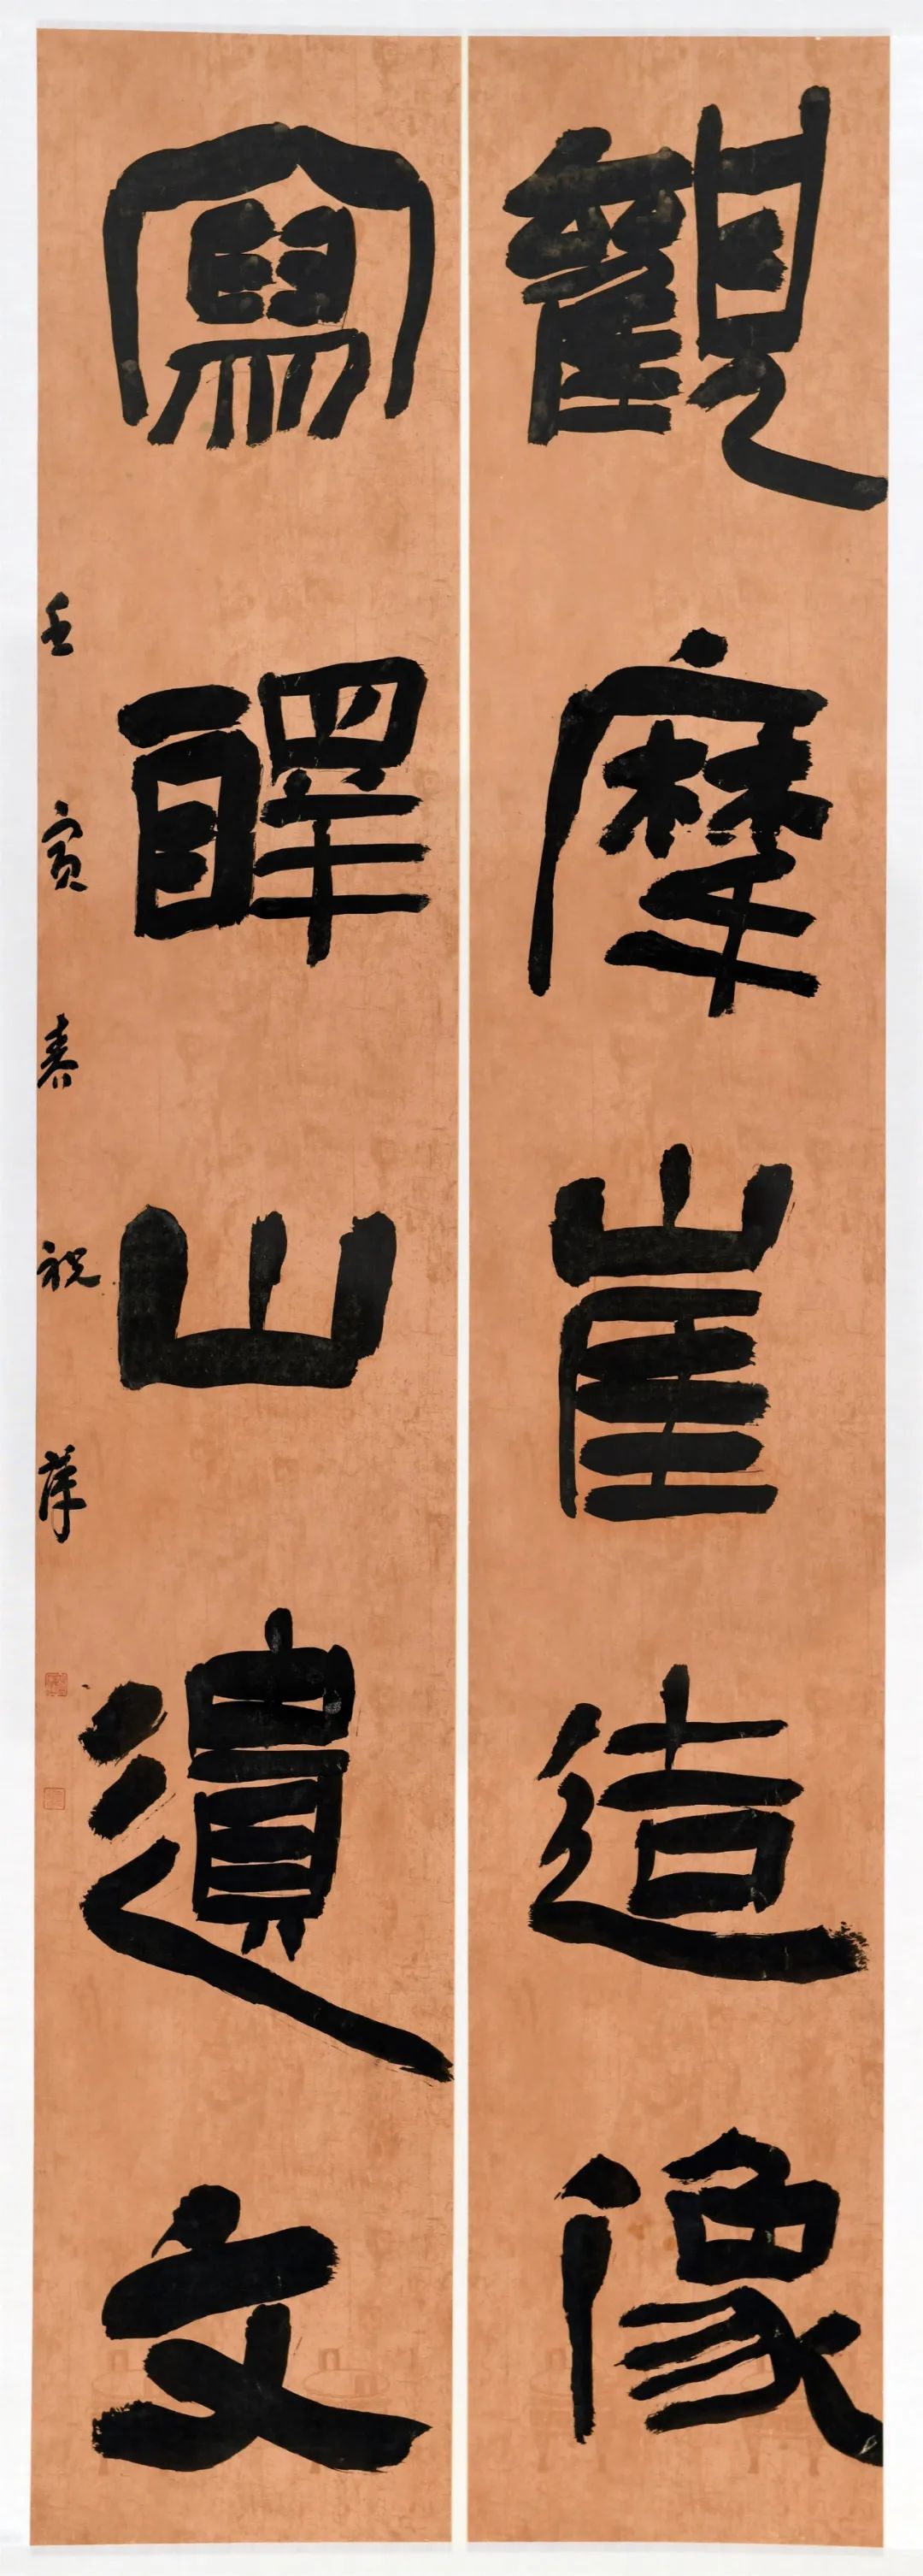 觀摩崖造像
寫醳山遺文
壬寅春祝